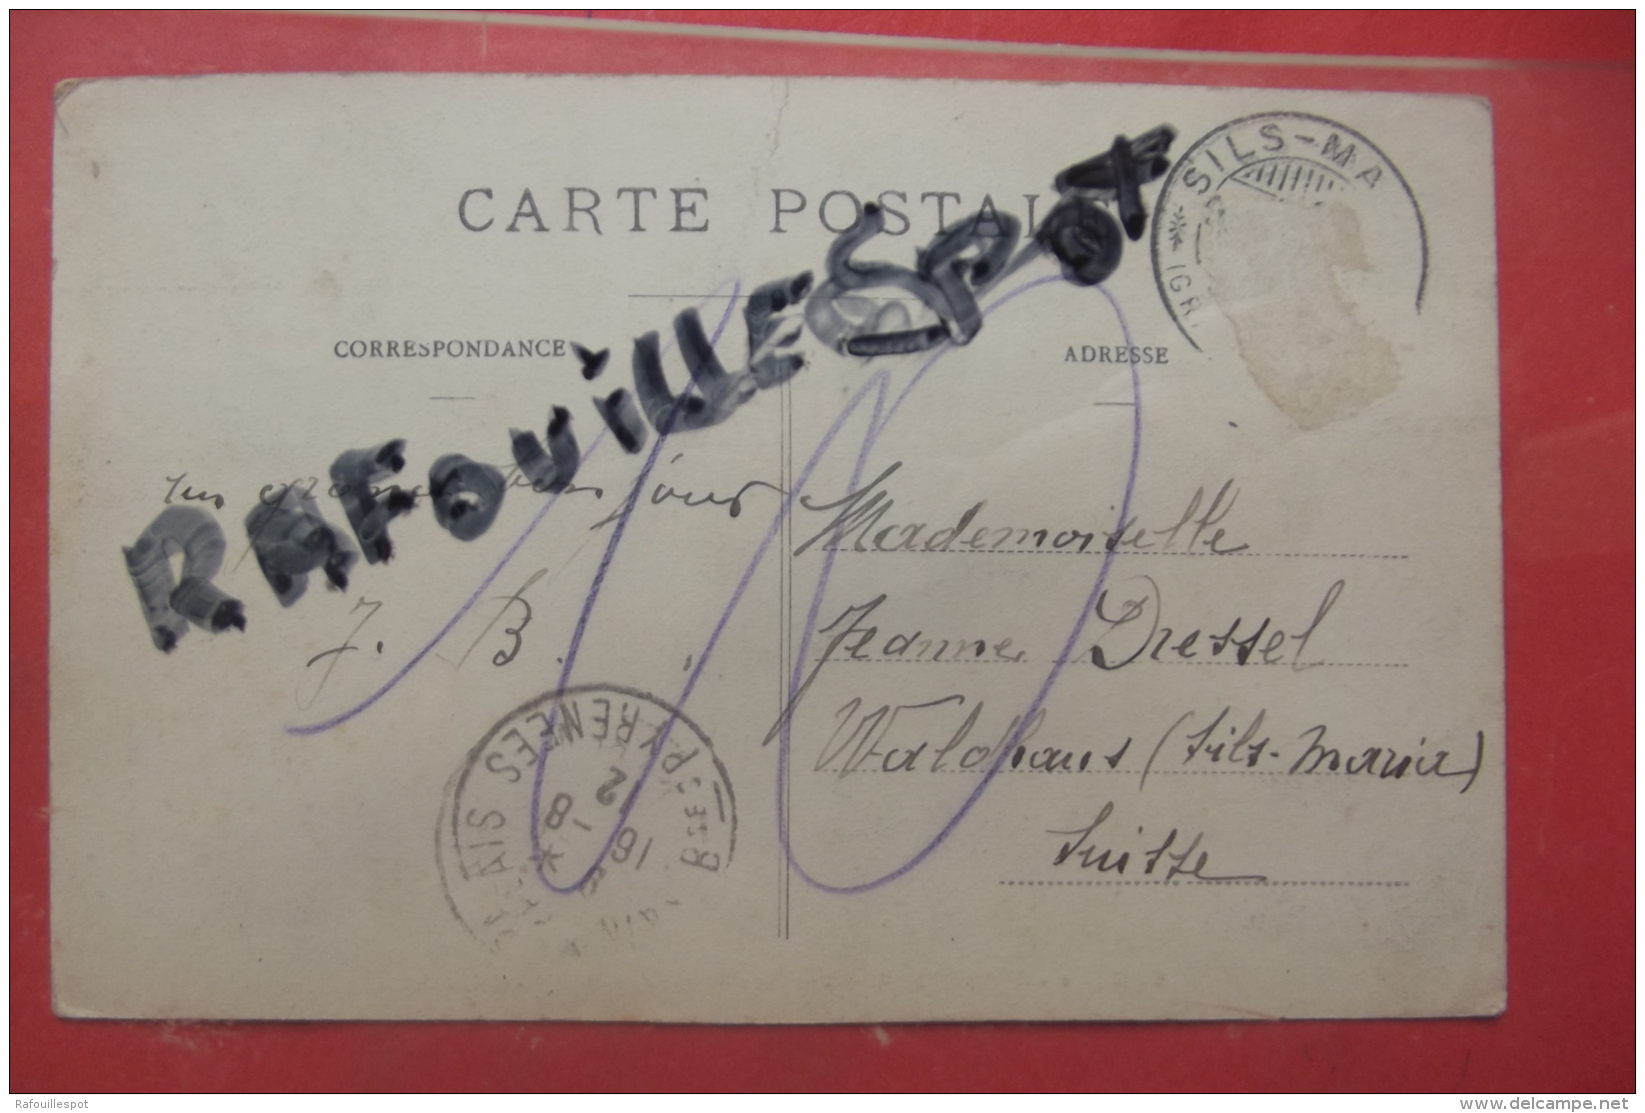 CARTE POSTALE
SILS-MA
CORRESPONDANCE
ADRESSE
RAFOUILLESPOT
jour
J. B.
Mademoiselle
Jeanne Dressel
Waldhaus (Sils-Maria)
Suisse
BSES PYRENEES
12
8
16
10
Rafouillespot
www.delcampe.net